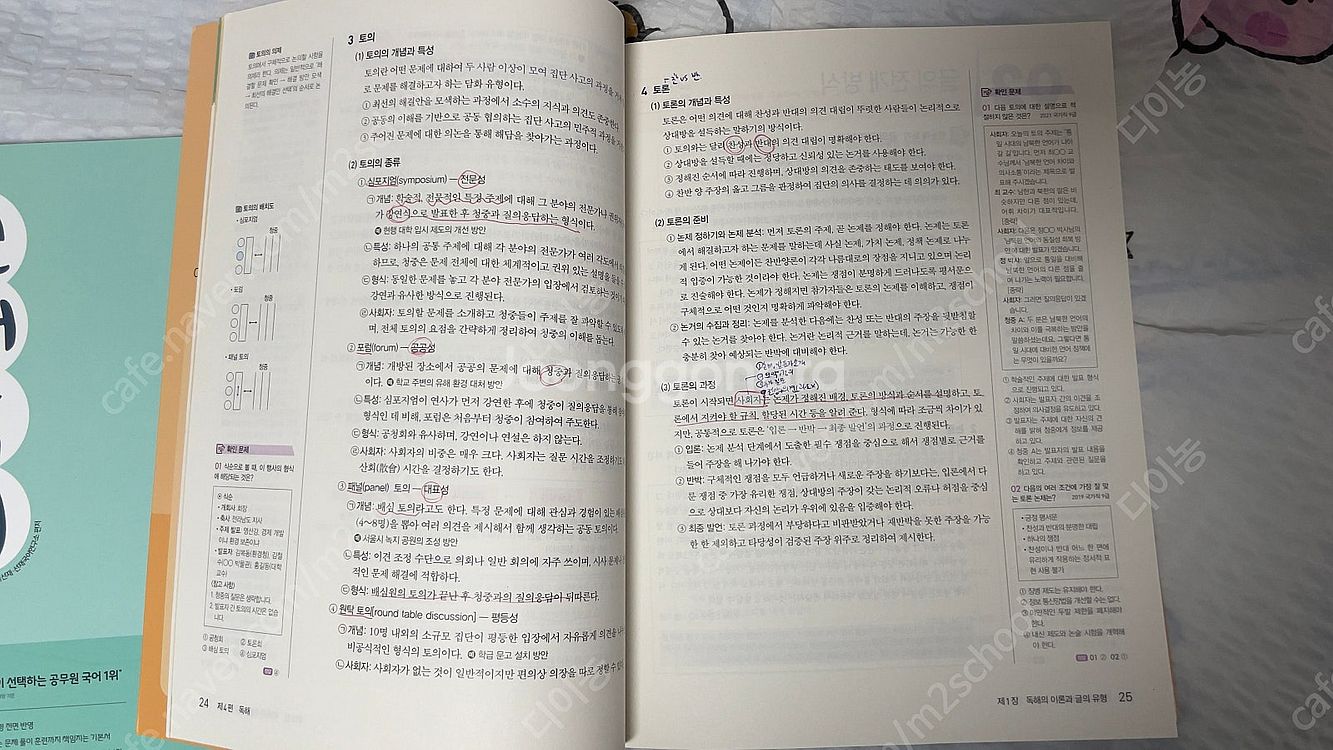 토의의 의제
토의에서 구체적으로 논의할 사항을
토의의 배치도
• 심포지엄
청중
• 포럼
청중
• 패널 토의
청중
확인 문제
01 식순으로 볼 때, 이 행사의 형식
에 해당되는 것은?
◎ 식순
• 개회사: 회장
• 축사: 전라남도 지사
• 주제 발표: 영산강, 경제 개발
이냐 환경 보존이냐
〈참고 사항〉
1. 청중의 질문은 생략합니다.
2. 발표자 간 토의의 시간은 없습
니다.
① 공청회 ② 토론회
③ 배심 토의 ④ 심포지엄
정답 ④
3 토의
(1) 토의의 개념과 특성
토의란 어떤 문제에 대하여 두 사람 이상이 모여 집단 사고의 과정을 거쳐
로 문제를 해결하고자 하는 담화 유형이다.
① 최선의 해결안을 모색하는 과정에서 소수의 지식과 의견도 존중한다.
② 공동의 이해를 기반으로 공동 협의하는 집단 사고의 민주적 과정을
③ 주어진 문제에 대한 의논을 통해 해답을 찾아가는 과정이다.
(2) 토의의 종류
① 심포지엄(symposium) — 전문성
㉠ 개념: 학술적, 전문적인 특정 주제에 대해 그 분야의 전문가나
가 강연식으로 발표한 후 청중과 질의응답하는 형식이다.
예 현행 대학 입시 제도의 개선 방안
㉡ 특성: 하나의 공통 주제에 대해 각 분야의 전문가가 여러 각도에서
하므로, 청중은 문제 전체에 대한 체계적이고 권위 있는 설명을 들을 수
㉢ 형식: 동일한 문제를 놓고 각 분야 전문가의 입장에서 검토하는 것이
강연과 유사한 방식으로 진행된다.
㉣ 사회자: 토의할 문제를 소개하고 청중들이 주제를 잘 파악할 수 있도록
며, 전체 토의의 요점을 간략하게 정리하여 청중의 이해를 돕는다.
② 포럼(forum) — 공공성
㉠ 개념: 개방된 장소에서 공공의 문제에 대해 청중과 질의응답하는
이다. 예 학교 주변의 유해 환경 대처 방안
㉡ 특성: 심포지엄이 연사가 먼저 강연한 후에 청중이 질의응답을 통해
형식인 데 비해, 포럼은 처음부터 청중이 참여하여 주도한다.
㉢ 형식: 공청회와 유사하며, 강연이나 연설은 하지 않는다.
㉣ 사회자: 사회자의 비중은 매우 크다. 사회자는 질문 시간을 조정하기도
산회(散會) 시간을 결정하기도 한다.
③ 패널(panel) 토의 — 대표성
㉠ 개념: 배심 토의라고도 한다. 특정 문제에 대해 관심과 경험이 있는
(4~8명)을 뽑아 여러 의견을 제시해서 함께 생각하는 공동 토의이다.
예 서울시 녹지 공원의 조성 방안
㉡ 특성: 이견 조정 수단으로 의회나 일반 회의에 자주 쓰이며, 시사 문제나
적인 문제 해결에 적합하다.
㉢ 형식: 배심원의 토의가 끝난 후 청중과의 질의응답이 뒤따른다.
④ 원탁 토의[round table discussion] — 평등성
㉠ 개념: 10명 내외의 소규모 집단이 평등한 입장에서 자유롭게 의견을
비공식적인 형식의 토의이다. 예 학급 문고 설치 방안
㉡ 사회자: 사회자가 없는 것이 일반적이지만 편의상 의장을 따로 정할 수
24 제4편 독해
4 토론
(1) 토론의 개념과 특성
토론은 어떤 의견에 대해 찬성과 반대의 의견 대립이 뚜렷한 사람들이 논리적으로
상대방을 설득하는 말하기의 방식이다.
① 토의와는 달리 찬성과 반대의 의견 대립이 명확해야 한다.
② 상대방을 설득할 때에는 정당하고 신뢰성 있는 논거를 사용해야 한다.
③ 정해진 순서에 따라 진행하며, 상대방의 의견을 존중하는 태도를 보여야 한다.
④ 찬반 양 주장의 옳고 그름을 판정하여 집단의 의사를 결정하는 데 의의가 있다.
(2) 토론의 준비
① 논제 정하기와 논제 분석: 먼저 토론의 주제, 곧 논제를 정해야 한다. 논제는 토론
에서 해결하고자 하는 문제를 말하는데 사실 논제, 가치 논제, 정책 논제로 나누
게 된다. 어떤 논제이든 찬반양론이 각각 나름대로의 장점을 지니고 있으며 논리
적 입증이 가능한 것이라야 한다. 논제는 쟁점이 분명하게 드러나도록 평서문으
로 진술해야 한다. 논제가 정해지면 참가자들은 토론의 논제를 이해하고, 쟁점이
구체적으로 어떤 것인지 명확하게 파악해야 한다.
② 논거의 수집과 정리: 논제를 분석한 다음에는 찬성 또는 반대의 주장을 뒷받침할
수 있는 논거를 찾아야 한다. 논거란 논리적 근거를 말하는데, 논거는 가능한 한
충분히 찾아 예상되는 반박에 대비해야 한다.
(3) 토론의 과정
토론이 시작되면 사회자는 논제가 정해진 배경, 토론의 방식과 순서를 설명하고, 토
론에서 지켜야 할 규칙, 할당된 시간 등을 알려 준다. 형식에 따라 조금씩 차이가 있
지만, 공통적으로 토론은 '입론 → 반박 → 최종 발언'의 과정으로 진행된다.
① 입론: 논제 분석 단계에서 도출한 필수 쟁점을 중심으로 해서 쟁점별로 근거를
들어 주장을 해 나가야 한다.
② 반박: 구체적인 쟁점을 모두 언급하거나 새로운 주장을 하기보다는, 입론에서 다
룬 쟁점 중 가장 유리한 쟁점, 상대방의 주장이 갖는 논리적 오류나 허점을 중심
으로 상대보다 자신의 논리가 우위에 있음을 입증해야 한다.
③ 최종 발언: 토론 과정에서 부당하다고 비판받았거나 재반박을 못한 주장을 가능
한 한 제외하고 타당성이 검증된 주장 위주로 정리하여 제시한다.
확인 문제
01 다음 토의에 대한 설명으로 적
절하지 않은 것은? 2021 국가직 9급
사회자: 오늘의 토의 주제는 '통
일 시대의 남북한 언어가 나아
갈 길'입니다. 먼저 최○○ 교
수님께서 '남북한 언어 차이와
의사소통'이라는 제목으로 발
표해 주시겠습니다.
최 교수: 남한과 북한의 말은 비
슷하지만 다른 점이 있는데,
어휘 차이가 대표적입니다.
[중략]
사회자: 다음은 정○○ 박사님의
'남북한 언어의 동질성 회복 방
안'에 대한 발표가 있겠습니다.
정 박사: 앞으로 통일을 대비해
남북한 언어의 다른 점을 줄
여 나가는 노력이 필요합니다.
[중략]
사회자: 그러면 질의응답이 있겠
습니다.
청중 A: 두 분은 남북한 언어의
차이와 이를 극복하는 방안을
말씀하셨는데요, 그렇다면 통
일 시대에 대비한 언어 정책에
는 무엇이 있을까요?
① 학술적인 주제에 대한 발표 형식
으로 진행되고 있다.
② 사회자는 발표자 간의 이견을 조
정하여 의사결정을 유도하고 있다.
③ 발표자는 주제에 대한 자신의 견
해를 밝혀 청중에게 정보를 제공
하고 있다.
④ 청중 A는 발표자의 발표 내용을
확인하고 주제와 관련된 질문을
하고 있다.
02 다음의 여러 조건에 가장 잘 맞
는 토론 논제는? 2019 국가직 9급
• 긍정 평서문
• 찬성과 반대의 분명한 대립
• 하나의 쟁점
• 찬성이나 반대 어느 한 편에
유리하게 작용하는 정서적 표
현 사용 불가
① 징병 제도는 유지해야 한다.
② 정보 통신망법을 개선할 수는 없다.
③ 야만적인 두발 제한을 폐지해야
한다.
④ 내신 제도와 논술 시험을 개혁해
야 한다.
정답 01 ② 02 ①
제1장 독해의 이론과 글의 유형 25
이 선택하는 공무원 국어 1위"
Joonggonara
cafe.naver.com/m2school
다이농